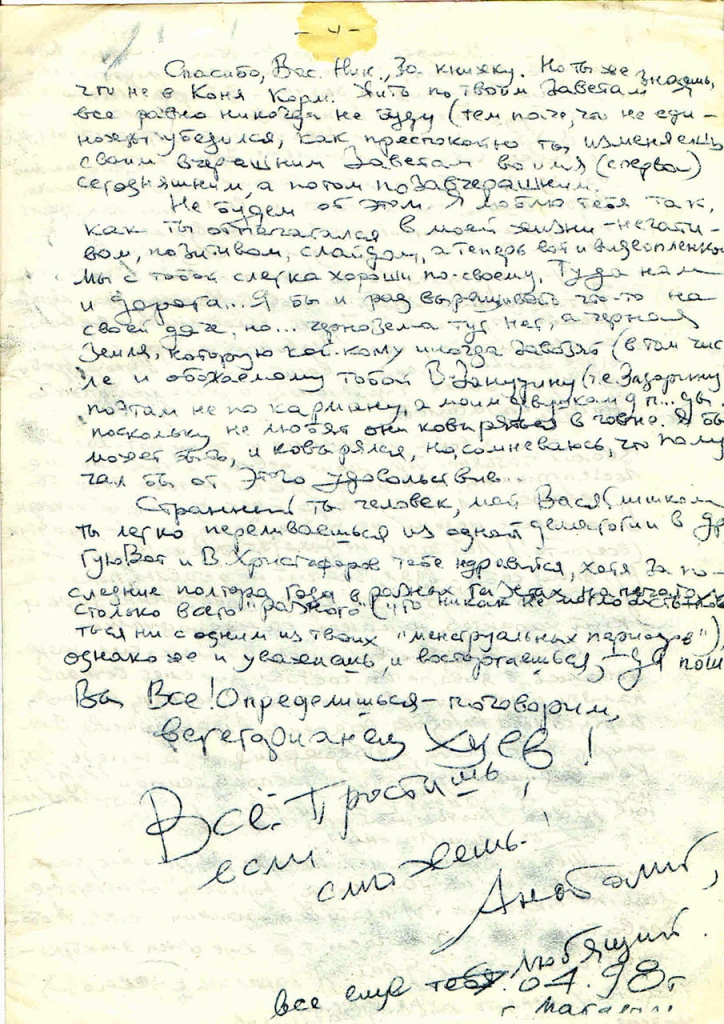 - 4 -
Спасибо, Вас. Ник., за книжку. Но ты же знаешь,
что не в Коня Корм. Жить по твоим заветам я
все равно никогда не буду (тем паче, что не еди-
ножды убедился, как преспокойно ты изменяешь
своим вчерашним заветам во имя (сперва)
сегодняшним, а потом позавчерашним.
Не будем об этом. Я люблю тебя так,
как ты отпечатался в моей жизни - негати-
вом, позитивом, слайдом, а теперь вот и видеопленкой
Мы с тобой слегка хороши по-своему. Туда нам
и дорога... Я бы и рад выращивать что-то на
своей даче, но... чернозема тут нет, а черная
земля, которую кой-кому иногда завозят (в том чис
ле и обожаемому тобой В. Занудину (т.е. Зазорину
поэтам не по карману, а моим девушкам д п...ды.
поскольку не любят они ковыряться в говне. Я бы
может быть, и ковырялся, но, сомневаюсь, что полу
чал бы от этого удовольствие...
Странный ты человек, мой Вася! Слишком
ты легко переливаешься из одной демагогии в др
гую. Вот и В. Христофоров тебе нравится, хотя за по-
следние полтора года в разных газетах напечатал
столько всего "разного" (что никак не могло
ться ни с одним из твоих "менструальных периодов"),
однако же и уважаешь, и восторгаешься, - да пош
Вы Все! Определишься - поговорим,
вегетарианец Хуев!
Всё. Простишь,
если сможешь.
Анатолий,
все еще тебя любящий.
04.98 г
г. Магадан